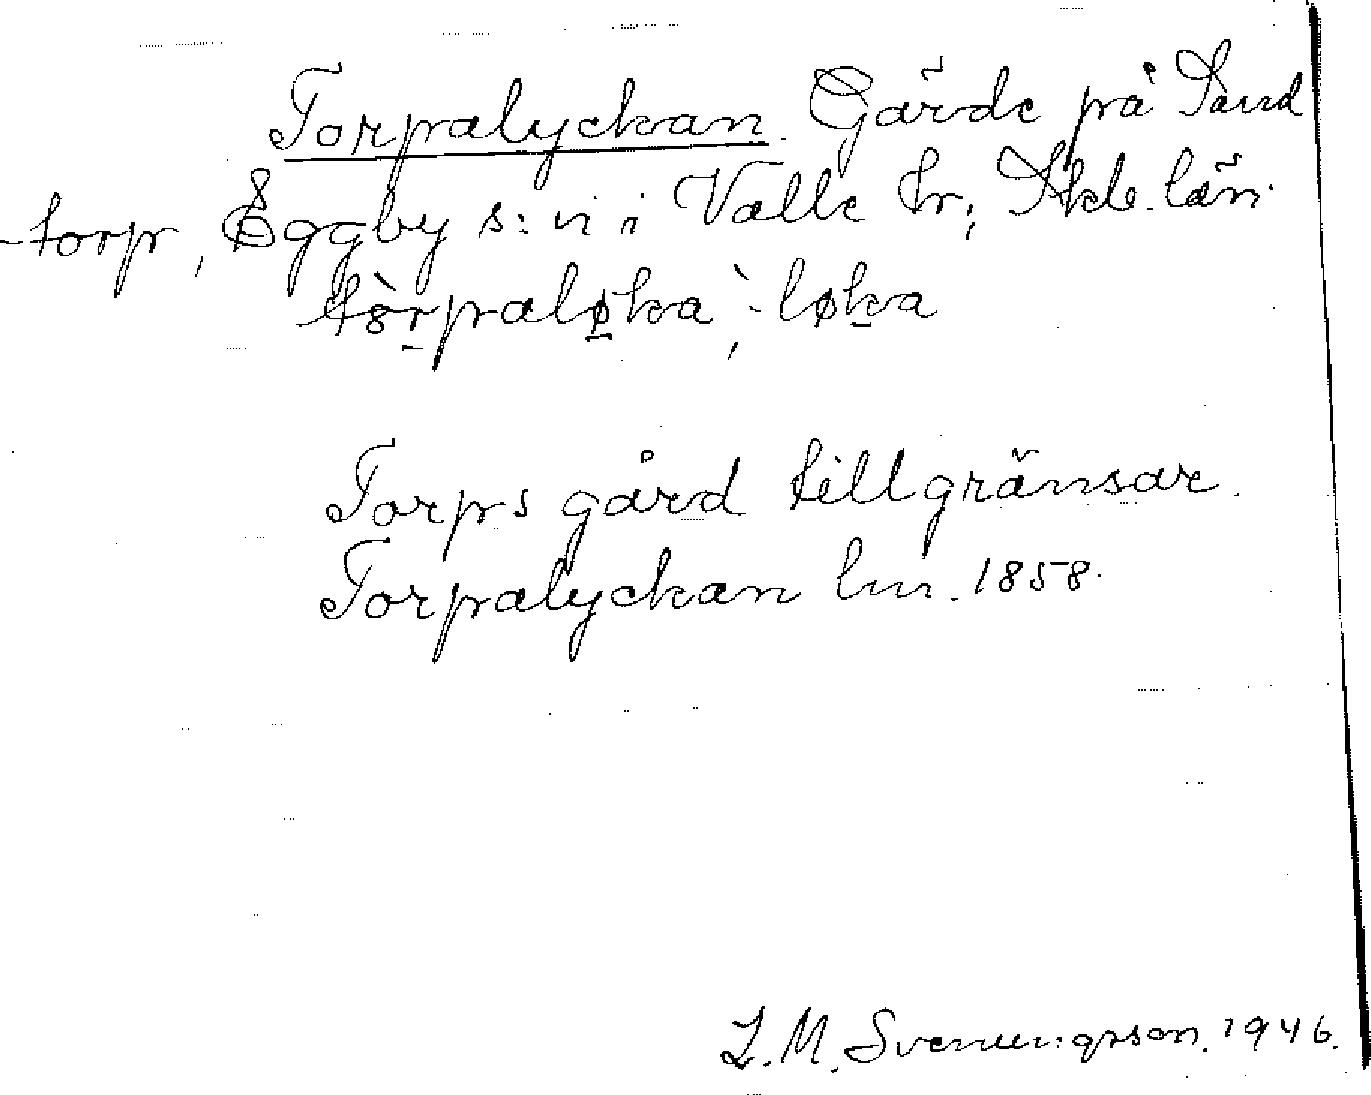 Torpalyckan. Gärde på Sand
-torp, Eggby s:n i Valle hr, Skb. län.
tòrpaløka, `-løka
Torps gård tillgränsar.
Torpalyckan lm. 1858.
L. M. Svenungsson. 1946.